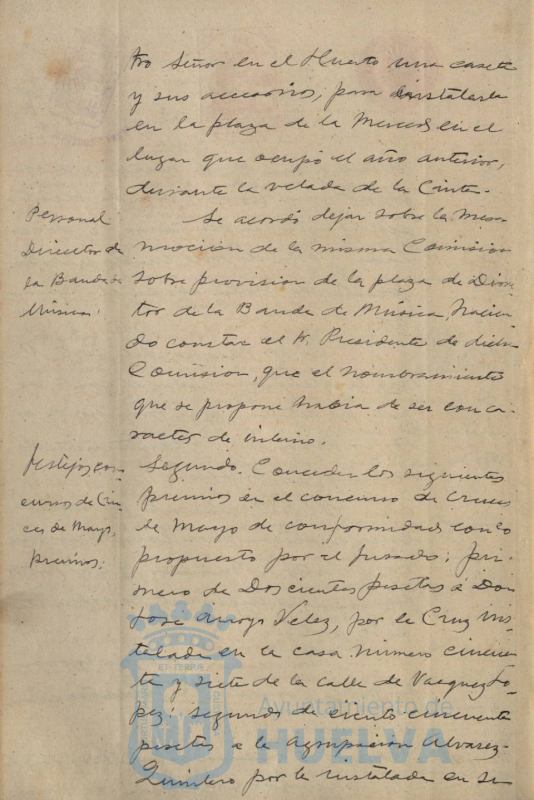 tro Señor en el Huerto una caseta
y sus accesorios, para instalarla
en la plaza de la Merced en el
lugar que ocupó el año anterior,
durante la velada de la Cinta.
Personal
Director de
la Banda de
Música.
Se acordó dejar sobre la Mesa
moción de la misma Comisión
sobre provisión de la plaza de Direc-
tor de la Banda de Música, hacien-
do constar el Sr. Presidente de dicha
Comisión, que el nombramiento
que se propone habia de ser con ca-
racter de interino.
Festejos con-
cursos de Cru-
ces de Mayo,
premios.
Segundo. Conceder los siguientes
premios en el concurso de Cruces
de Mayo de conformidad con lo
propuesto por el Jurado: pri-
mero de Doscientas pesetas á Don
José Velez, por la Cruz ins-
talada en la casa número cincuen-
ta y siete de la calle de Vazquez Lo-
pez; segundo de ciento cincuenta
pesetas a la agrupación Alvarez-
Quintero por la instalada en su
ET TERRÆ
Ayuntamiento de
HUELVA